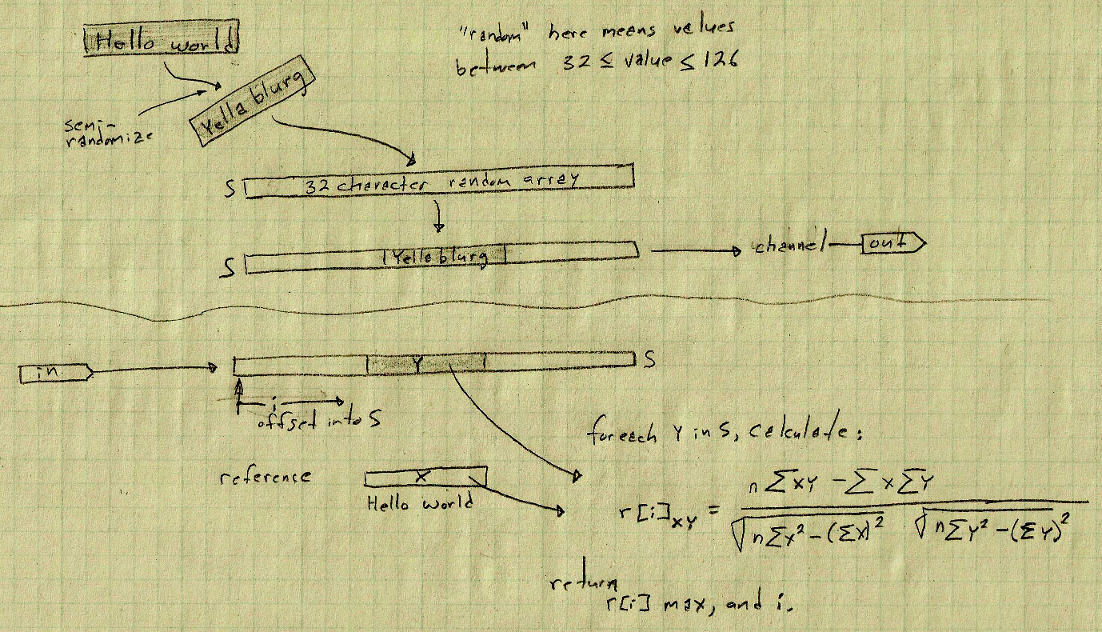 Hello world
"random" here means values
between 32 ≤ value ≤ 126
Yella blurg
semi-
randomize
S 32 character random array
S Yella blurg
channel out
in Y S
i
offset into S
foreach Y in S, calculate:
reference X
Hello world
r[i]XY = n∑XY - ∑X∑Y / √n∑X² - (∑X)² √n∑Y² - (∑Y)²
return
r[i] max, and i.